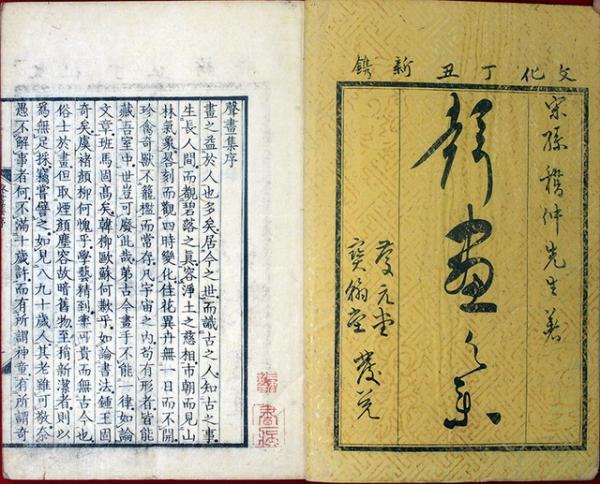 文化丁丑新鐫
宋孫稽仲先生著
聲畫集
慶元堂
寶翰堂 發兌
聲畫集序
畫之益於人也多矣居今之世而識古之人知古之事
生長人間而觀碧落之真容淨土之慈相市朝而見山
林氣象晷刻而觀四時變化佳花異卉無一日而不開
珍禽奇獸不籠檻而當存凡宇宙之內苟有形者皆能
藏吾室中世豈可廢此哉第古今畫手不能一律如論
文章班馬固髙矣韓柳歐蘇何歉乎如論書法鍾王固
奇矣虞褚顏柳何愧乎學藝精到率可貴而無古今也
俗士於畫但取煙顏塵容故暗舊物至稍新潔者則以
爲無足採竊嘗譬之如見八九十歲人其老雖可敬奈
愚不解事者何不滿十歲許而有所謂神童有所謂奇